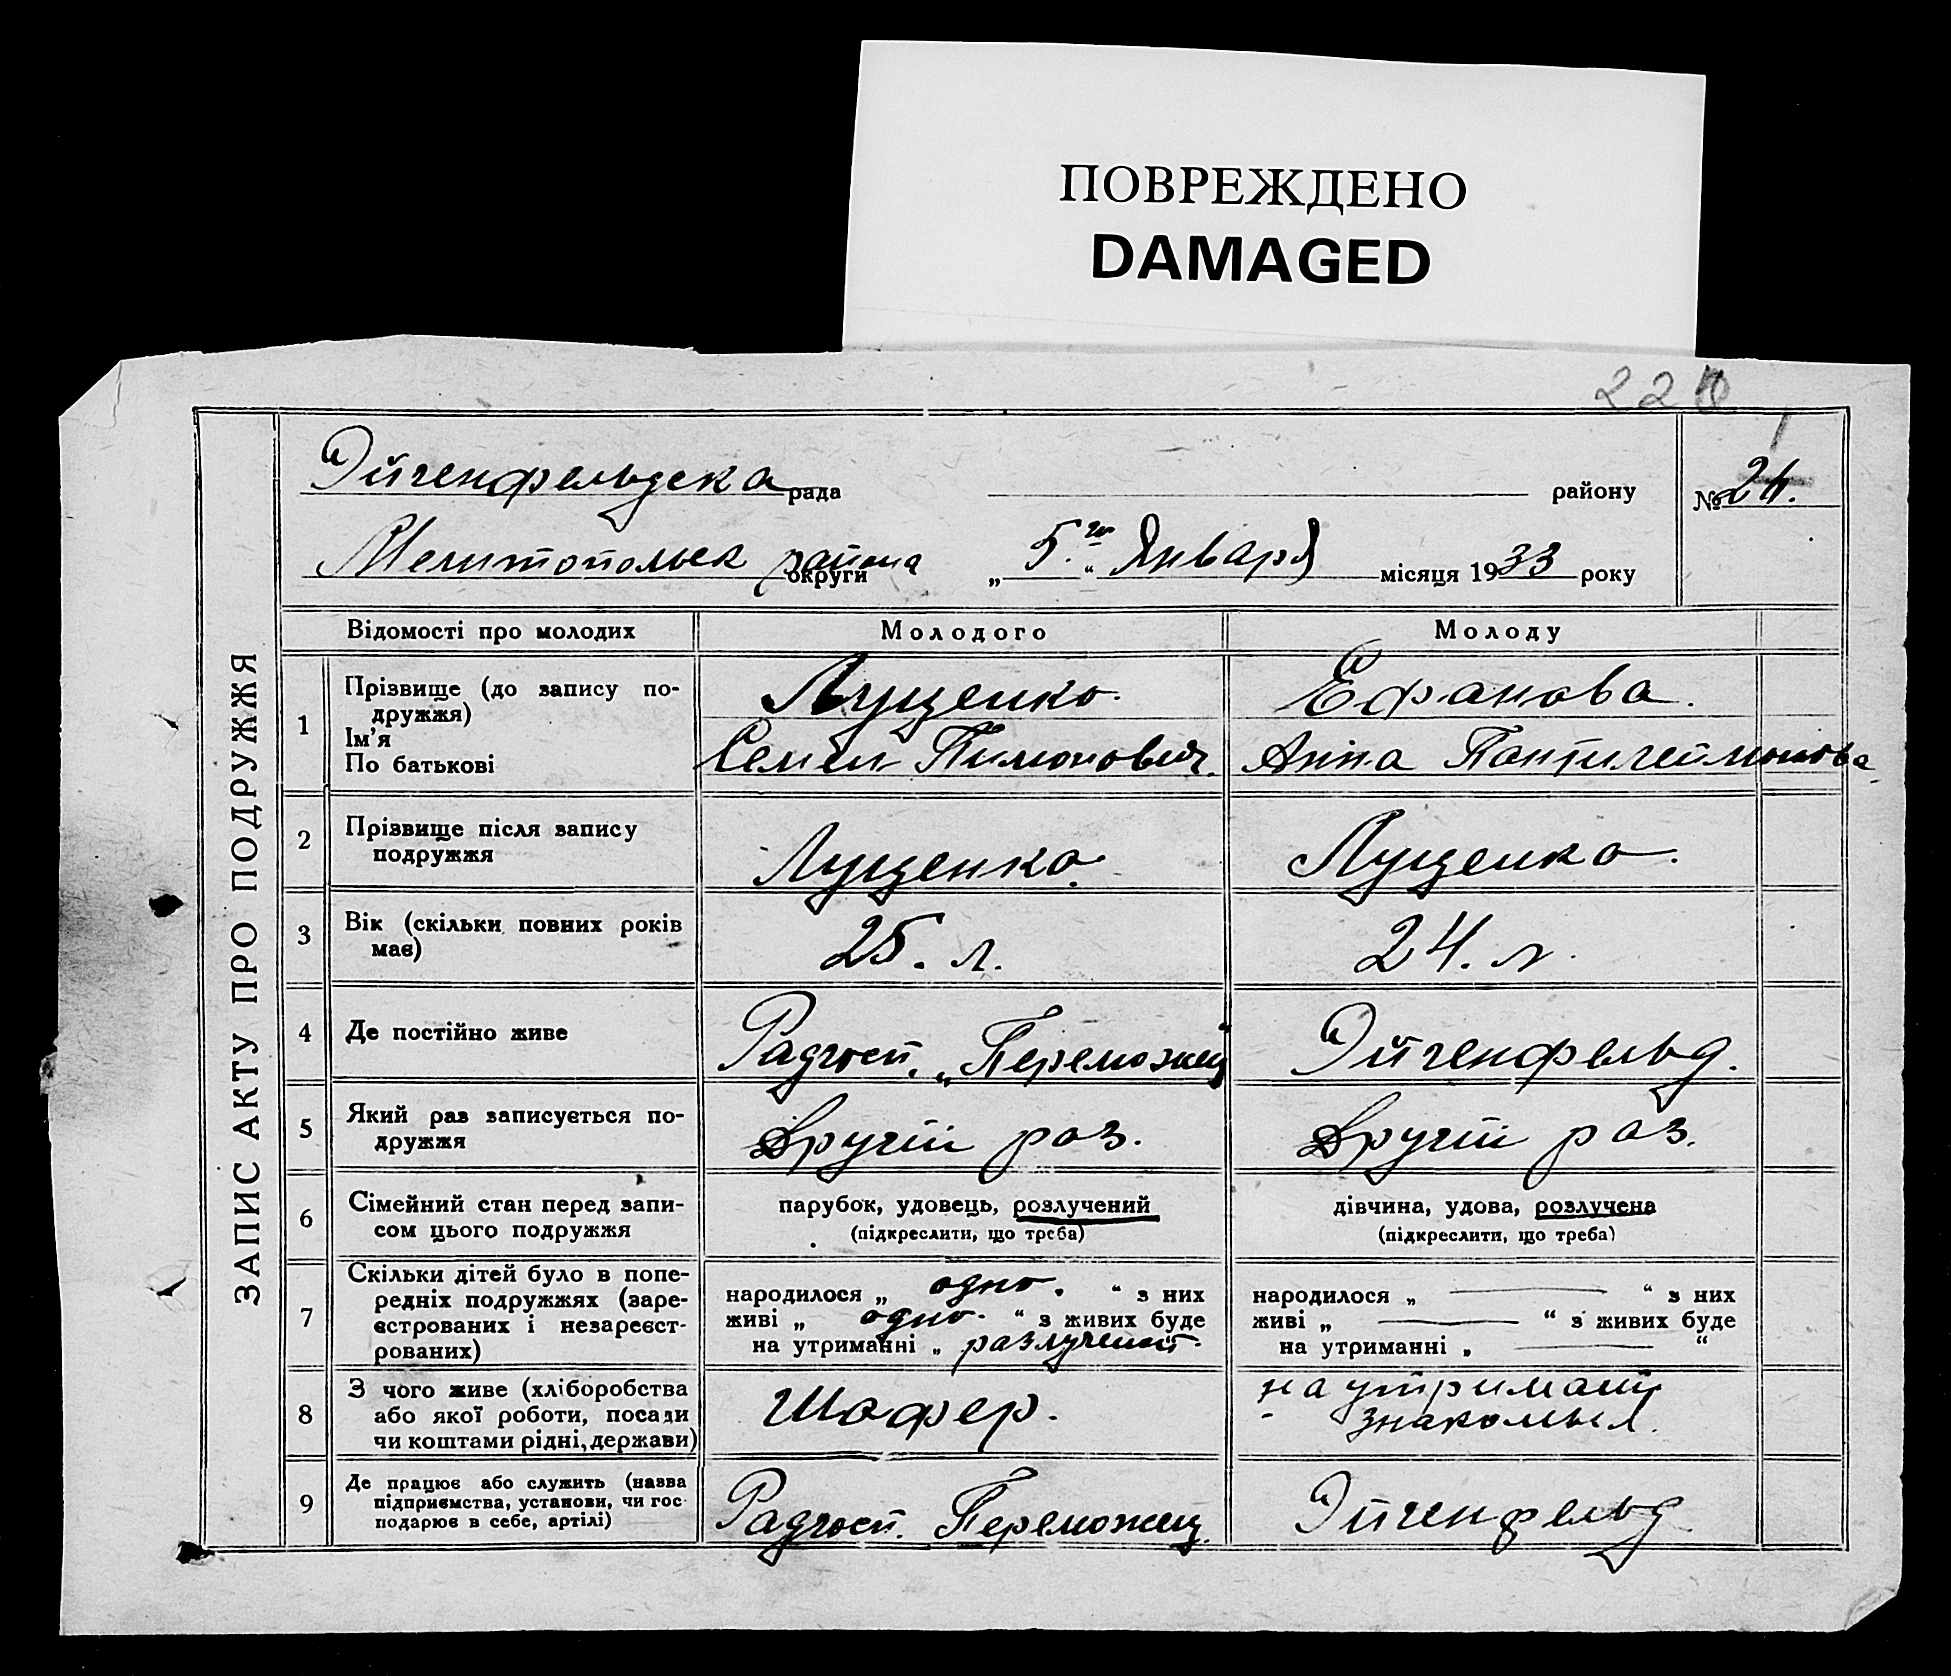 ПОВРЕЖДЕНО
DAMAGED
ЗАПИС АКТУ ПРО ПОДРУЖЖЯ
Эйгенфельдска рада району
№ 24.
Мелитопольск района округи „ 5.го “ Января місяця 1933 року
Відомості про молодих Молодого Молоду
1 Прізвище (до запису по-
дружжя)
Ім’я
По батькові
Лущенко.
Семен Пимонович.
Ефанова.
Анна Пантилеймонова
2 Прізвище після запису
подружжя
Лущенко.
Лущенко.
3 Вік (скільки повних років
має)
25. л.
24. л.
4 Де постійно живе
Радгосп. „Переможец“
Эйгенфельд.
5 Який раз записується по-
дружжя
Другий раз.
Другий раз.
6 Сімейний стан перед запи-
сом цього подружжя
парубок, удовець, розлучений
(підкреслити, що треба)
дівчина, удова, розлучена
(підкреслити, що треба)
7 Скільки дітей було в попе-
редніх подружжях (заре-
єстрованих і незареєст-
рованих)
народилося „ одно. “ з них
живі „ одно. “ з живих буде
на утриманні „
народилося „ “ з них
живі „ “ з живих буде
на утриманні „ “
8 З чого живе (хліборобства
або якої роботи, посади
чи коштами рідні, держави)
Шофер.
на утримані
9 Де працює або служить (назва
підприємства, установи, чи гос-
подарює в себе, артілі)
Радгосп. Переможец.
Эйгенфельд